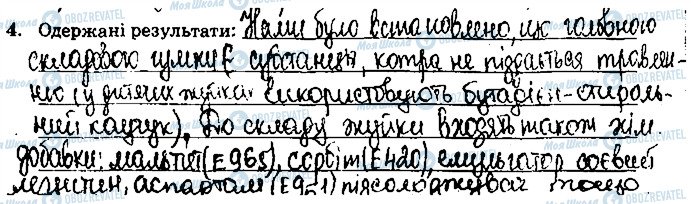 4. Одержані результати: Нами було встановлено, що головною
складовою гумки Є субстанція, котра не піддається травлен-
ню (у дитячих жуйках використовують бутадієн-стироль-
ний каучук). До складу жуйки входять також хім
добавки: мальтит (Е965), сорбіт (Е420), емульгатор соєвий
лецитин, аспартам (Е951) підсолоджувач тощо